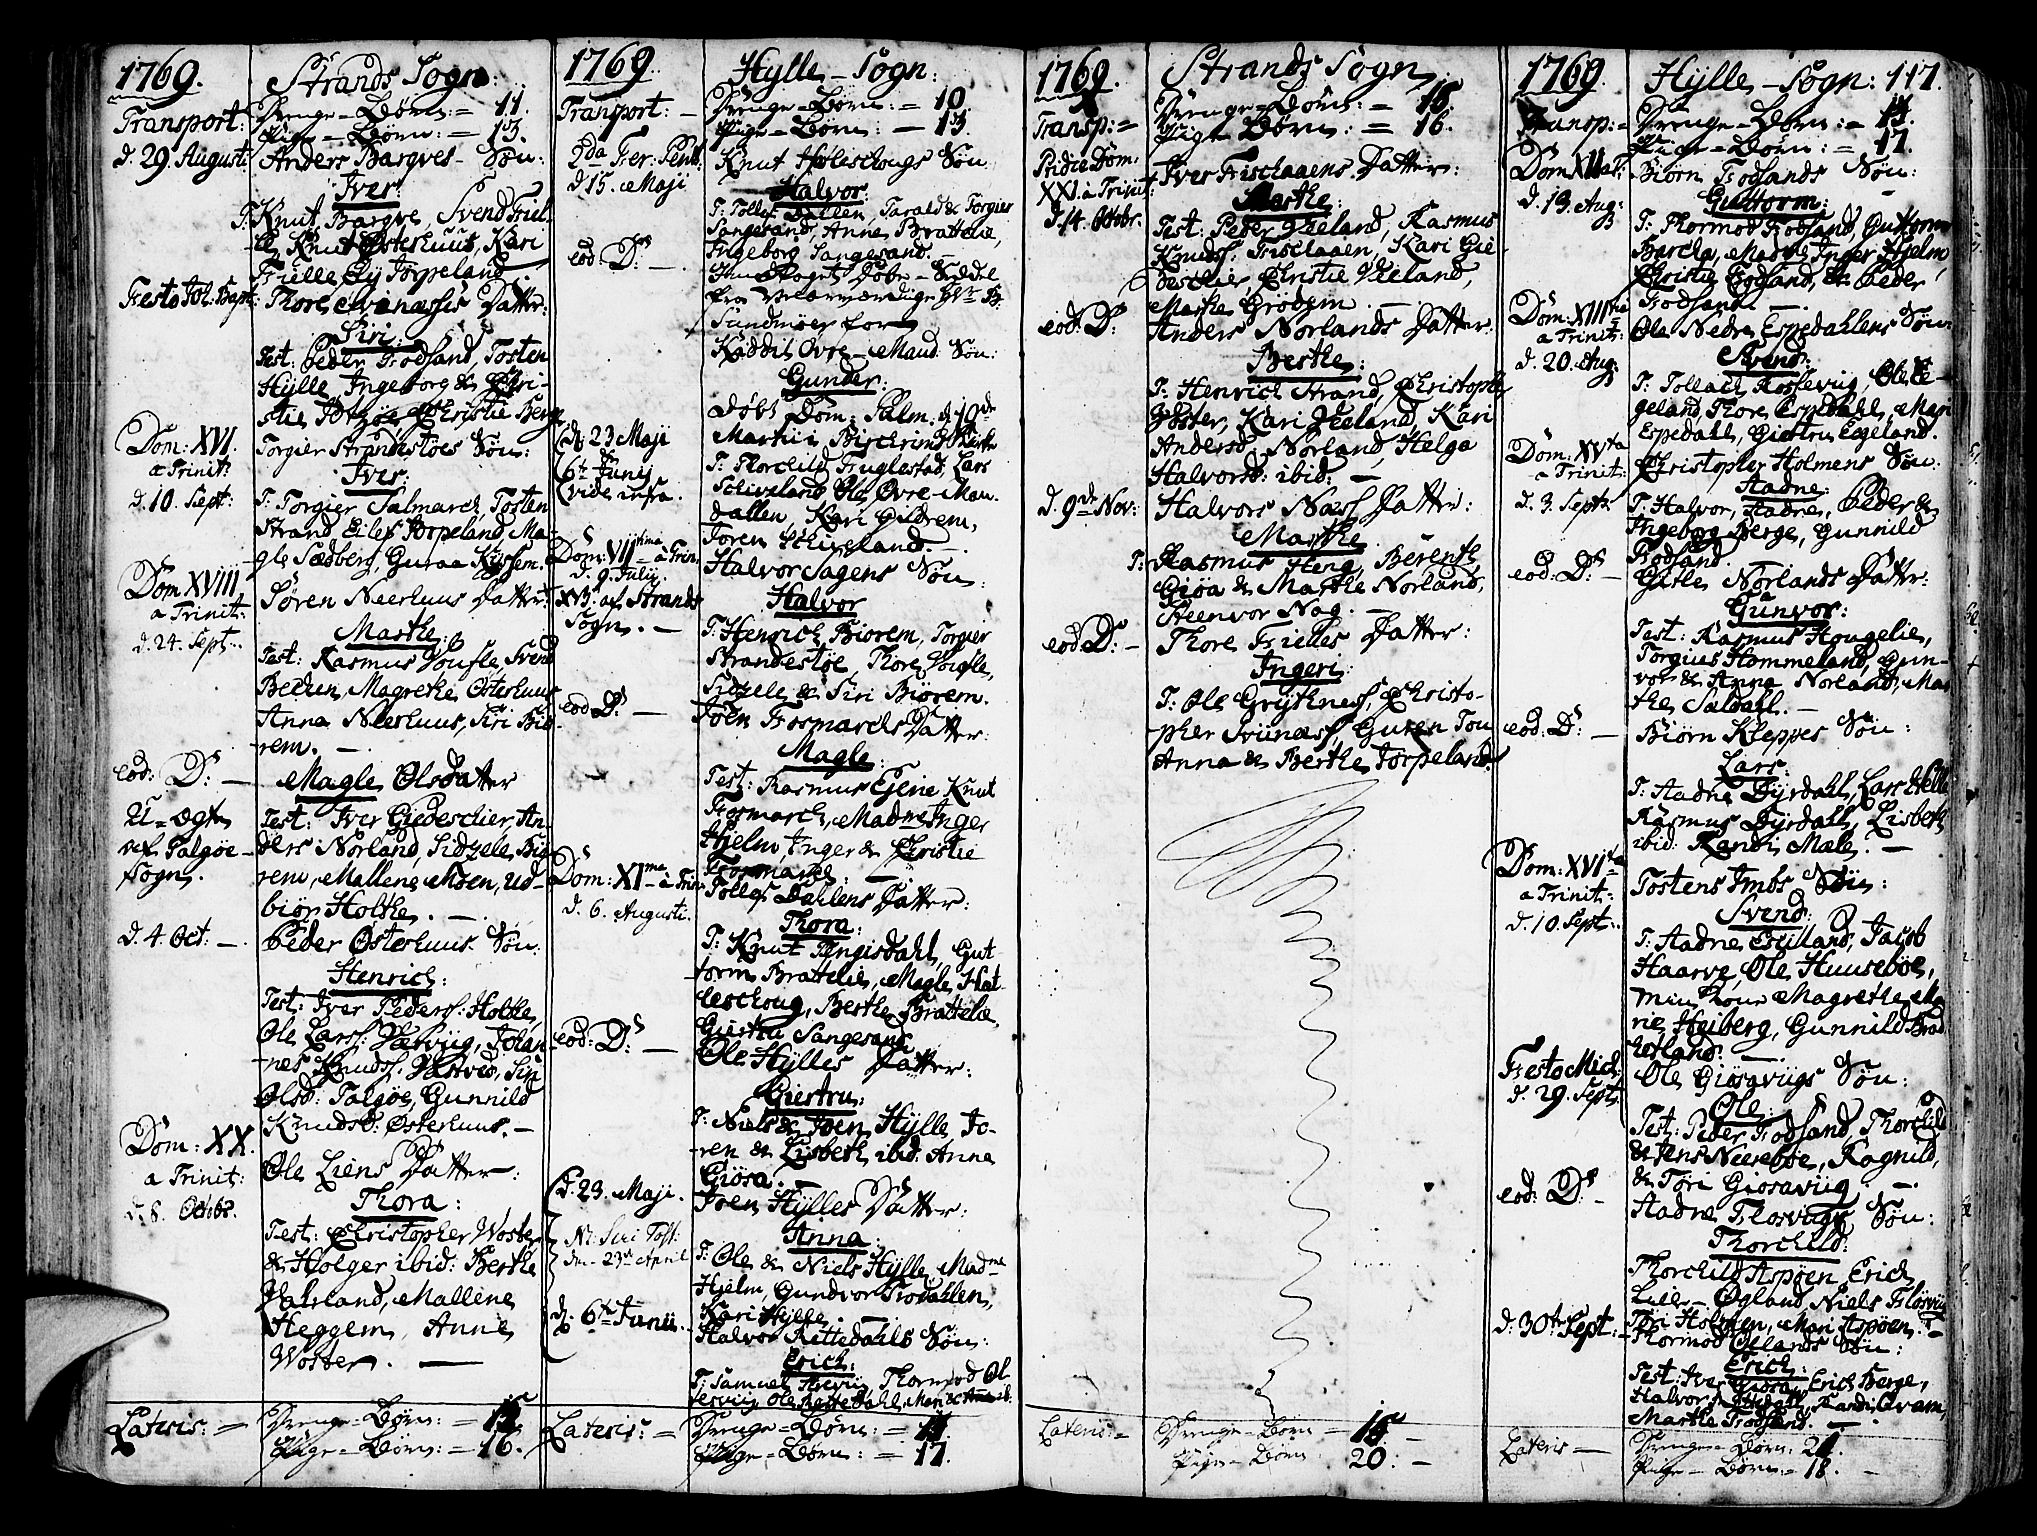 1769.
Strands Sogn:
Transport:
Drenge-Børn: = 11.
Pige-Børn: = 13.
d. 29. August:
Anders Bargves Søn:
Iver
T. Knut Bargve, Svend Friel-
le, Knut Østerhuus, Kari
Frielle, Torpeland
Festo Joh: Bapt:
Thore Datter:
Siri:
Test: Peder Frodsand, Tosten
Hylle, Ingeborg & Chri-
stie Christie Berge
Dom: XVI.
a Trinit:
d. 10. Sept:
Torgier Strandestøes Søn:
Iver:
T. Torgier Salmarck, Tosten
Strand, Eilef Torpeland, Ma-
gle Sædberg, Guroe
Dom XVIII
a Trinit:
d. 24. Sept:
Søren Neerhuus Datter:
Marthe:
Test: Rasmus Voufle, Svend
Becken, Magrethe Østerhuus
Anna Neerhuus, Siri Biø-
rem. —
eod: D: —
Magle Olsdatter
af Talgøe
Sogn.
Test: Iver Giedesclier, An-
ders Norland, Sidzele Biø-
rem, Mallene Moen, Ud-
biør Holthe. —
d. 4. Oct: —
Peder Østerhuus Søn:
Henrich:
Test: Iver Peders: Holthe,
Ole Larss: Johan-
nes Knuds: Siri
Olsd: Talgøe, Gunnild
Knudsd: Østerhuus. —
Dom: XX.
a Trinit:
d. 8. Octobr.
Ole Liens Datter:
Thora:
Test: Christopher Woster
& Holger ibid: Berthe
Valsland, Mallene
Heggem, Anne
Woster. —
Lateris: =
Drenge-Børn: = 15
Pige-Børn: = 16.
1769
Hylle-Sogn:
Transport: —
Drenge-Børn: = 10.
Pige-Børn: — 13
2da Fer: Pent:
d. 15. Maji
Knut Høleschougs Søn
Halvor
T: Tollef Dallen, Tarald & Torgier
Sangesand, Anne Brattelie,
Ingeborg Sangesand.
eod: D: —
Døbe-Seddel
fra Velærværdige Hr.
Sundmøer for
Kaddit Øvre-Maud: Søn:
Gunder:
Døbt Dom: Palm:
(d. 23 Maji
(6te Junij
(vide infra.
T. Thorchild Fuglestad, Lars
Schiveland, Ole Øvre-Mau-
dallen, Kari Gildrem,
Joren Schiveland. —
Dom: VIItima a Trin.
d. 9. Julij.
NB. af Strands
Sogn. —
Halvor Sagens Søn:
Halvor
T: Henrich Biorem, Torgier
Strandestøe, Thore Voufle,
Sidzele & Siri Biørem.
eod D: —
Joen Fosmarcks Datter:
Magle:
Test: Rasmus Eiene, Knut
Fosmarck, Madme Inger
Hjelm, Inger & Christie
Fosmarck. —
Dom: XIma a Trin:
d. 6. Augusti.
Tollef Dahlens Datter:
Thora:
T: Knut Tengisdahl, Gut-
torm Brattelie, Magle Høl-
leschoug, Berthe Brattelie,
Giertru Sangesand
eod: D: —
Ole Hylles Datter:
Giertru:
T: Niels & Joen Hylle, Jo-
ren & Lisbeth ibid: Anne
Giøsa. —
(d. 23. Maji.
Joen Hylles Datter:
Anna:
T: Ole & Niels Hylle, Madme
Hjelm, Gundvor Frodahlen,
Kari Hylle. —
d. 6te Junii.
Halvor Rettedahls Søn:
Erich:
T: Samuel Thormod
Lateris: =
Drenge-Børn: = 14
Pige-Børn: = 17.
1769.
Strands Sogn
Transp: =
Drenge-Børn: = 15.
Pige Børn: = 16.
Pridie Dom:
XXI a Trinit:
d. 14. Octobr.
Iver Frischaaens Datter:
Marthe:
Test: Peder Vieland, Rasmus
Knuds: Frischaaen, Kari Gie-
desclier, Christie Vieland,
Marthe Grødem —
eod: D:
Anders Norlands Datter:
Berthe:
T: Henrich Strand, Christopher
Woster, Kari Veeland, Kari
Andersd: Norland, Helga
Halvorsd: ibid: —
d. 9de Nov:
Halvors Nags Datter:
Marthe
T: Rasmus Heng, Berenth
Giøa & Marthe Norland,
Steenvor Nag. —
eod: D: —
Thore Frielles Datter:
Ingeri:
T: Ole Grythnes, Christo-
pher Svines, Guren Tou
Anna & Berthe Torpeland.
Lateris: =
Drenge-Børn = 15 —
Pige-Børn 20. —
1769
Hylle-Sogn: 117.
Transp: =
Drenge-Børn: — 14.
Pige-Børn: = 17.
Dom XIIa T:
d. 13. Aug:
Biørn Frodsands Søn:
Guttorm:
T: Thormod Frodsand, Guttorm
Barcka, Madme Inger Hjelm
Christie Eggland, & Peder
Frodsand —
Dom: XIIItia
a Trinit:
d. 20. Aug:
Ole Nedre Espedahlens Søn:
Svend:
T. Tollach Ole E-
geland, Thore Espedahl, Mari
Espedahl, Giertru Egeland.
Dom: XVta
a Trinit:
d. 3. Septr.
Christopher Holmens Søn:
Aadne:
T. Halvor, Aadne, Peder &
Ingeborg Berge, Gunnild
Frodsand.
eod: D: —
Gitle Norlands Datter:
Gunvor:
Test: Rasmus Hougelie,
Torgius Hommeland, Gun-
vor & Anna Norland, Mar-
the Saldahl. —
eod: D: —
Biørn Kleppes Søn:
Lars:
T. Aadne Dyrdahl, Lars Helle
Rasmus Dyrdahl, Lisbeth
ibid: Randi Mæle. —
Dom: XVIta
a Trinit:
d. 10. Sept:
Tostens Imbs Søn:
Svend:
T: Aadne Eselland, Jacob
Haarve, Ole Huusebøe,
min Kone Magrethe Ma-
rie Heiberg, Gunnild
Festo Mich:
d. 29. Sept:
Ole Giøsavigs Søn:
Ole:
Test: Peder Frodsand, Thorchild
& Jens Neesebøe, Ragnild,
& Tøri Giøsaviig. —
eod: D: —
Aadne Flosviigs Søn:
Thorchild:
Thorchild Aspøen, Erich
Lille-Øgland, Niels Fløsviig
Tøri Holmen, Mari Aspøen. —
d. 30te Sept: —
Thormod Øllands Søn:
Erich:
Test: Iver Giøsa, Erich Berge,
Halvor Randi Qvam,
Marthe Frodsand. —
Lateris —
Drenge-Børn: 21.
Pige-Børn: = 18. —